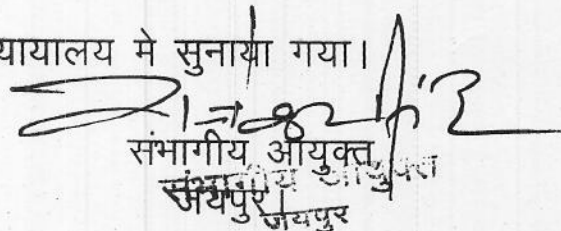 यायालय मे सुनाया गया।
संभागीय आयुक्त
संभागीय आयुक्त
जयपुर।
जयपुर